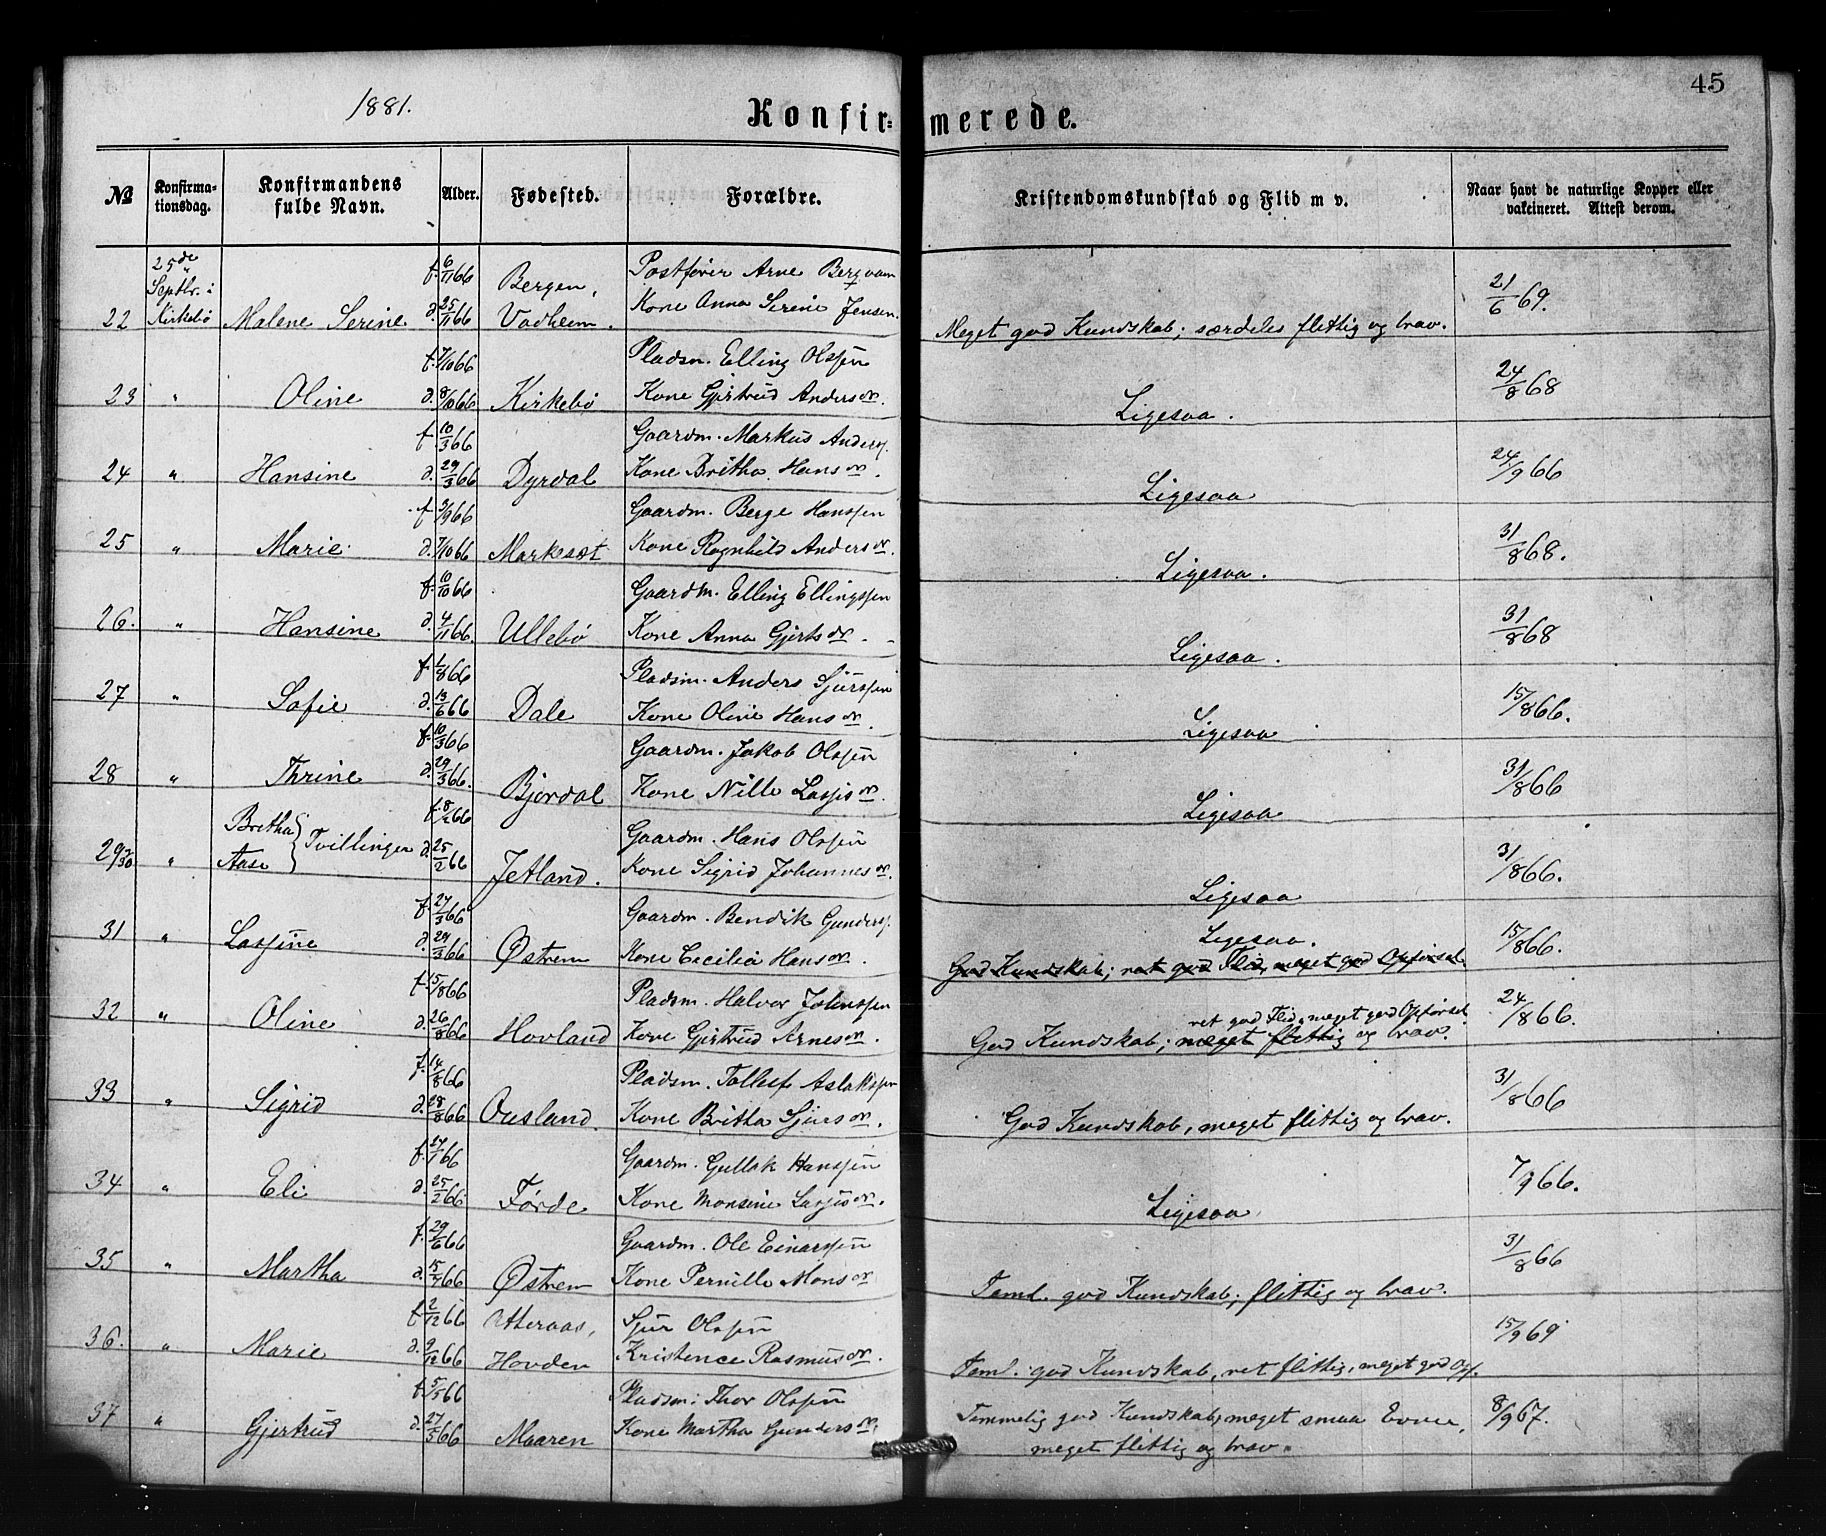 1881.
45
Konfirmerede.
№ Konfirma-tionsdag. Konfirmandens fulde Navn. Alder. Fødested. Forældre. Kristendomskundskab og Flid m v. Naar havt de naturlige Kopper eller vakcineret. Attest derom.
25de f. 6/11 66 Bergen, Postfører Arne Bergvam
Septbr. i
22 Kirkebø Malene Serine d. 25/11 66 Vadheim. Kone Anna Serine Jensen. Meget god Kundskab; særdeles flittig og brav. 21/6 69.
f. 7/10 66 Pladsm. Elling Olssen
23 " Oline d. 8/10 66 Kirkebø Kone Gjertrud Andersdr. Ligesaa. 24/8 68
f. 10/3 66 Gaardm. Markus Anderss.
24 " Hansine d. 29/3 66 Dyrdal Kone Britha Hansdr. Ligesaa 24/9 66
f. 5/9 66 Gaardm. Berge Hanssen
25 " Marie d. 7/10 66 Markesæt Kone Ragnhild Andersdr. Ligesaa. 31/8 68.
f. 10/10 66 Gaardm. Elling Ellingssen
26. " Hansine d. 4/11 66. Ullebø Kone Anna Gjertsdr. Ligesaa. 31/8 68
f. 1/8 66 Pladsm. Anders Sjurssen
27 " Sofie d. 13/6 66 Dale Kone Oline Hansdr. Ligesaa 15/8 66.
f. 10/3 66 Gaardm. Jakob Olssen
28 " Thrine d. 29/3 66. Bjordal Kone Nille Lassesdr. Ligesaa 31/8 66
Bretha f. 8/2 66 Gaardm. Hans Olssen
29 & 30 " Aase } Tvillinger d. 25/2 66 Jetland. Kone Sigrid Johannesdr. Ligesaa 31/8 66.
f. 27/3 66 Gaardm. Bendik Gunderss. Ligesaa.
31 " Lassine d. 29/3 66 Østrem Kone Cecilia Hansdr. God Kundskab; ret god Flid, meget god Opførsel. 15/8 66.
f. 15/8 66 Pladsm. Halvor Johnssen ret god Flid, meget god Opførsel
32 " Oline d. 26/8 66 Hovland Kone Gjertrud Arnesdr. God Kundskab; meget flittig og brav. 24/8 66.
f. 14/8 66 Pladsm. Tollef Aslakssen
33 " Sigrid d. 28/8 66 Ousland. Kone Britha Sjursdr. God Kundskab, meget flittig og brav. 31/8 66
f. 27/1 66 Gaardm. Gullak Hanssen
34 " Eli d. 25/2 66. Førde Kone Monsine Lassesdr. Ligesaa 7/9 66.
f. 29/6 66 Gaardm. Ole Einarssen
35 " Martha d. 15/7 66 Østrem Kone Pernille Monsdr. Taml. god Kundskab; flittig og brav. 31/8 66
f. 2/12 66 Otteraas, Sjur Olssen
36. " Marie d. 9/12 66 Hovden Kristence Rasmusdr. Taml. god Kundskab, ret flittig, meget god Opf. 15/9 69
f. 5/5 66 Pladsm. Thor Olssen
37 " Gjertrud d. 27/5 66 Maaren Kone Martha Gundersdr. Temmelig god Kundskab, meget smaa Evner, 8/9 67.
meget flittig og brav.